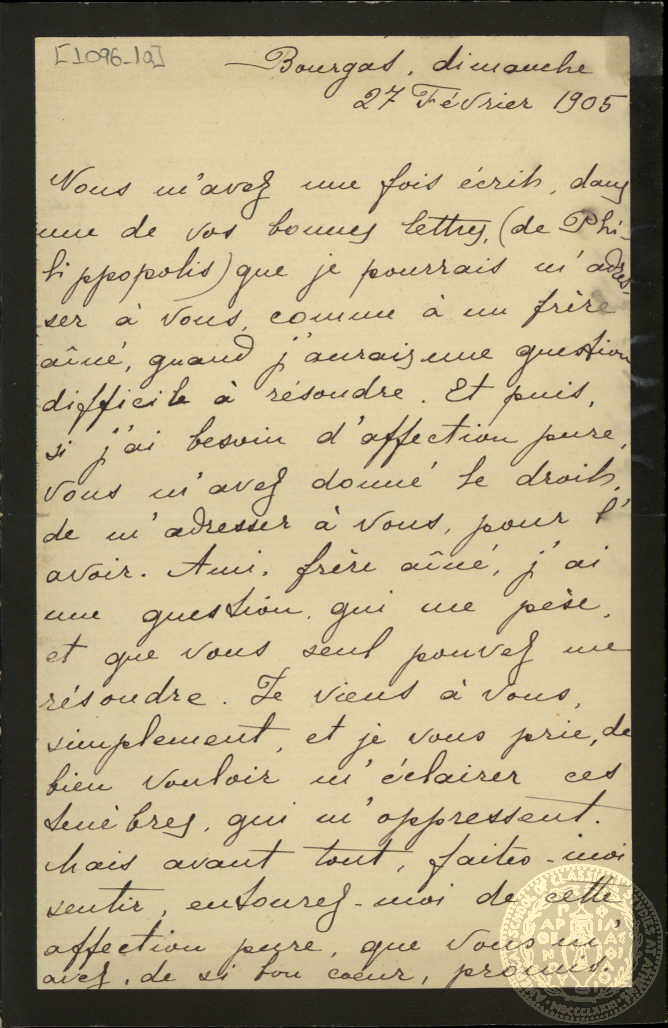 [1096-1a]
Bourgas, dimanche
27 Février 1905
Vous m'avez une fois écrit, dans
une de vos bonnes lettres, (de Phi-
lippopolis) que je pourrais m'adres-
ser à vous, comme à un frère
aîné, quand j'aurais une question
difficile à résoudre. Et puis,
si j'ai besoin d'affection pure,
vous m'avez donné le droit,
de m'adresser à vous, pour l'
avoir. Ami, frère aîné, j'ai
une question, qui me pèse,
et que vous seul pouvez me
résoudre. Je viens à vous,
simplement, et je vous prie, de
bien vouloir m'éclairer ces
tenèbres, qui m'oppressent.
Mais avant tout, faites-moi
sentir, entourez-moi de cette
affection pure, que vous m'
avez, de si bon coeur, promis.